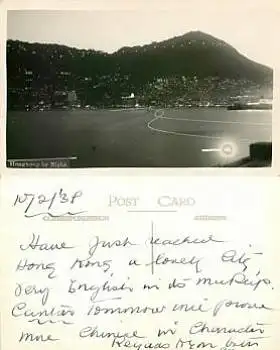 Hongkong by Night
10/2/38
POST CARD
Have just reached
Hong Kong a lovely City
Very English in its makeup.
Canton tomorrow will prove
more Chinese in Character
Regards from